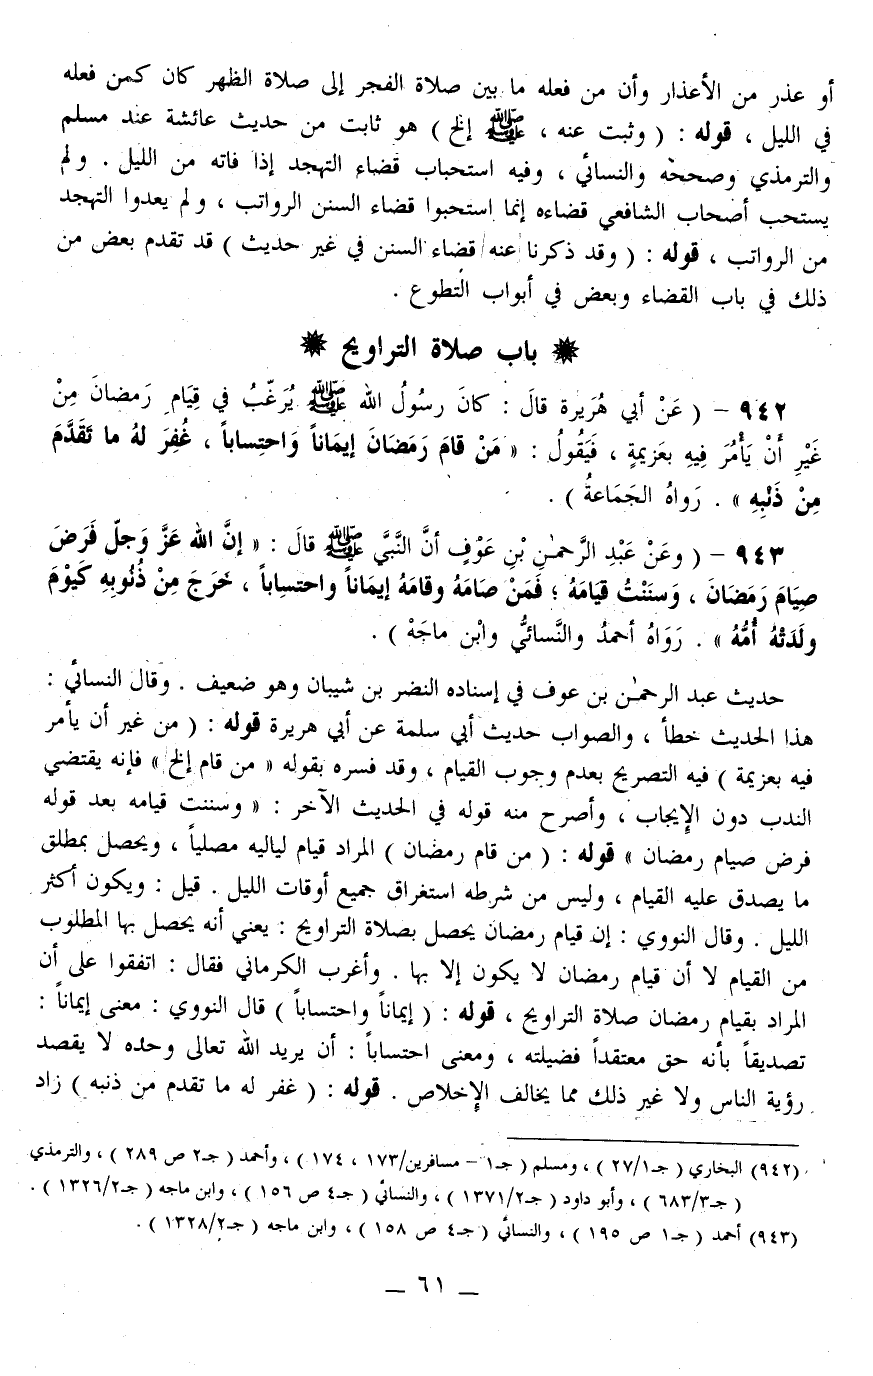 أو عذر من الأعذار وأن من فعله ما بين صلاة الفجر إلى صلاة الظهر كان كمن فعله
في الليل ، قوله : ( وثبت عنه ، ﷺ إلخ ) هو ثابت من حديث عائشة عند مسلم
والترمذي وصححه والنسائي ، وفيه استحباب قضاء التهجد إذا فاته من الليل . ولم
يستحب أصحاب الشافعي قضاءه إنما استحبوا قضاء السنن الرواتب ، ولم يعدوا التهجد
من الرواتب ، قوله : ( وقد ذكرنا عنه قضاء السنن في غير حديث ) قد تقدم بعض من
ذلك في باب القضاء وبعض في أبواب التطوع .
باب صلاة التراويح
٩٤٢ – ( عَنْ أبي هُرَيرة قالَ : كانَ رسُولُ الله ﷺ يُرَغّبُ في قِيَامِ رَمضانَ مِنْ
غَيْرِ أَنْ يَأْمُرَ فِيهِ بعَزِيمةٍ ، فَيَقُولُ : « مَنْ قامَ رَمَضَانَ إيمَاناً وَاحتِساباً ، غُفِرَ لهُ ما تَقَدَّمَ
مِنْ ذَنْبِهِ » . رَواهُ الجَمَاعةُ ) .
٩٤٣ – ( وعَنْ عَبْدِ الرَّحمٰنِ بْنِ عَوْفٍ أنَّ النَّبيَّ ﷺ قالَ : « إنَّ الله عَزَّ وَجلّ فَرَضَ
صِيَامَ رَمَضَانَ ، وَسنَنْتُ قيَامَهُ ؛ فَمَنْ صَامَهُ وقامَهُ إيمَاناً واحتِساباً ، خَرَجَ مِنْ ذُنُوبِهِ كَيَوْمَ
ولَدَتْهُ أُمُّهُ » . رَوَاهُ أحمدُ والنَّسائيُّ وابْن ماجَهْ ) .
حديث عبد الرحمٰن بن عوف في إسناده النضر بن شيبان وهو ضعيف . وقال النسائي :
هذا الحديث خطأ ، والصواب حديث أبي سلمة عن أبي هريرة قوله : ( من غير أن يأمر
فيه بعزيمة ) فيه التصريح بعدم وجوب القيام ، وقد فسره بقوله « من قام إلخ » فإنه يقتضي
الندب دون الإيجاب ، وأصرح منه قوله في الحديث الآخر : « وسننت قيامه بعد قوله
فرض صيام رمضان » قوله : ( من قام رمضان ) المراد قيام لياليه مصلياً ، ويحصل بمطلق
ما يصدق عليه القيام ، وليس من شرطه استغراق جميع أوقات الليل . قيل : ويكون أكثر
الليل . وقال النووي : إن قيام رمضان يحصل بصلاة التراويح : يعني أنه يحصل بها المطلوب
من القيام لا أن قيام رمضان لا يكون إلا بها . وأغرب الكرماني فقال : اتفقوا على أن
المراد بقيام رمضان صلاة التراويح ، قوله : ( إيماناً واحتساباً ) قال النووي : معنى إيماناً :
تصديقاً بأنه حق معتقداً فضيلته ، ومعنى احتساباً : أن يريد الله تعالى وحده لا يقصد
رؤية الناس ولا غير ذلك مما يخالف الإخلاص . قوله : ( غفر له ما تقدم من ذنبه ) زاد
(٩٤٢) البخاري ( جـ٢٧/١ ) ، ومسلم ( جـ١ – مسافرين/١٧٣ ، ١٧٤ ) ، وأحمد ( جـ٢ ص ٢٨٩ ) ، والترمذي
( جـ٦٨٣/٣ ) ، وأبو داود ( جـ١٣٧١/٢ ) ، والنسائي ( جـ٤ ص ١٥٦ ) ، وابن ماجه ( جـ١٣٢٦/٢ ) .
(٩٤٣) أحمد ( جـ١ ص ١٩٥ ) ، والنسائي ( جـ٤ ص ١٥٨ ) ، وابن ماجه ( جـ١٣٢٨/٢ ) .
– ٦١ –